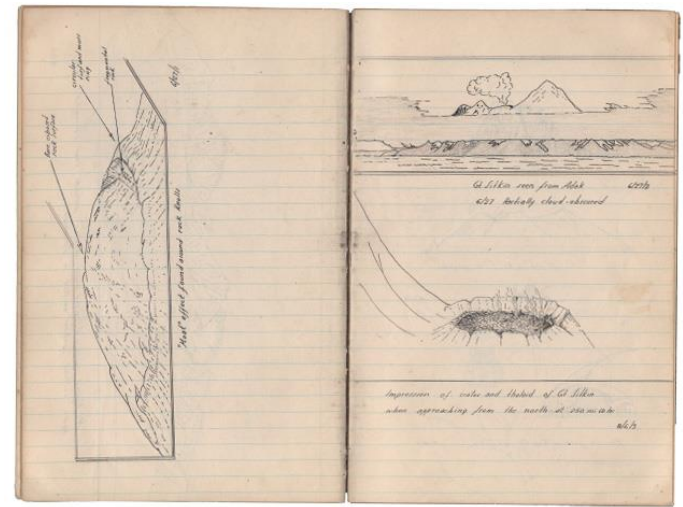 Bare exposed
rock surface
circular
turf and moss
ring
fragmented
rock
"Moat" effect found around rock knolls
Gt Sitkin seen from Adak
6/27 Partially cloud-obscured
Impression of crater and tholoid of Gt Sitkin
when approaching from the north at